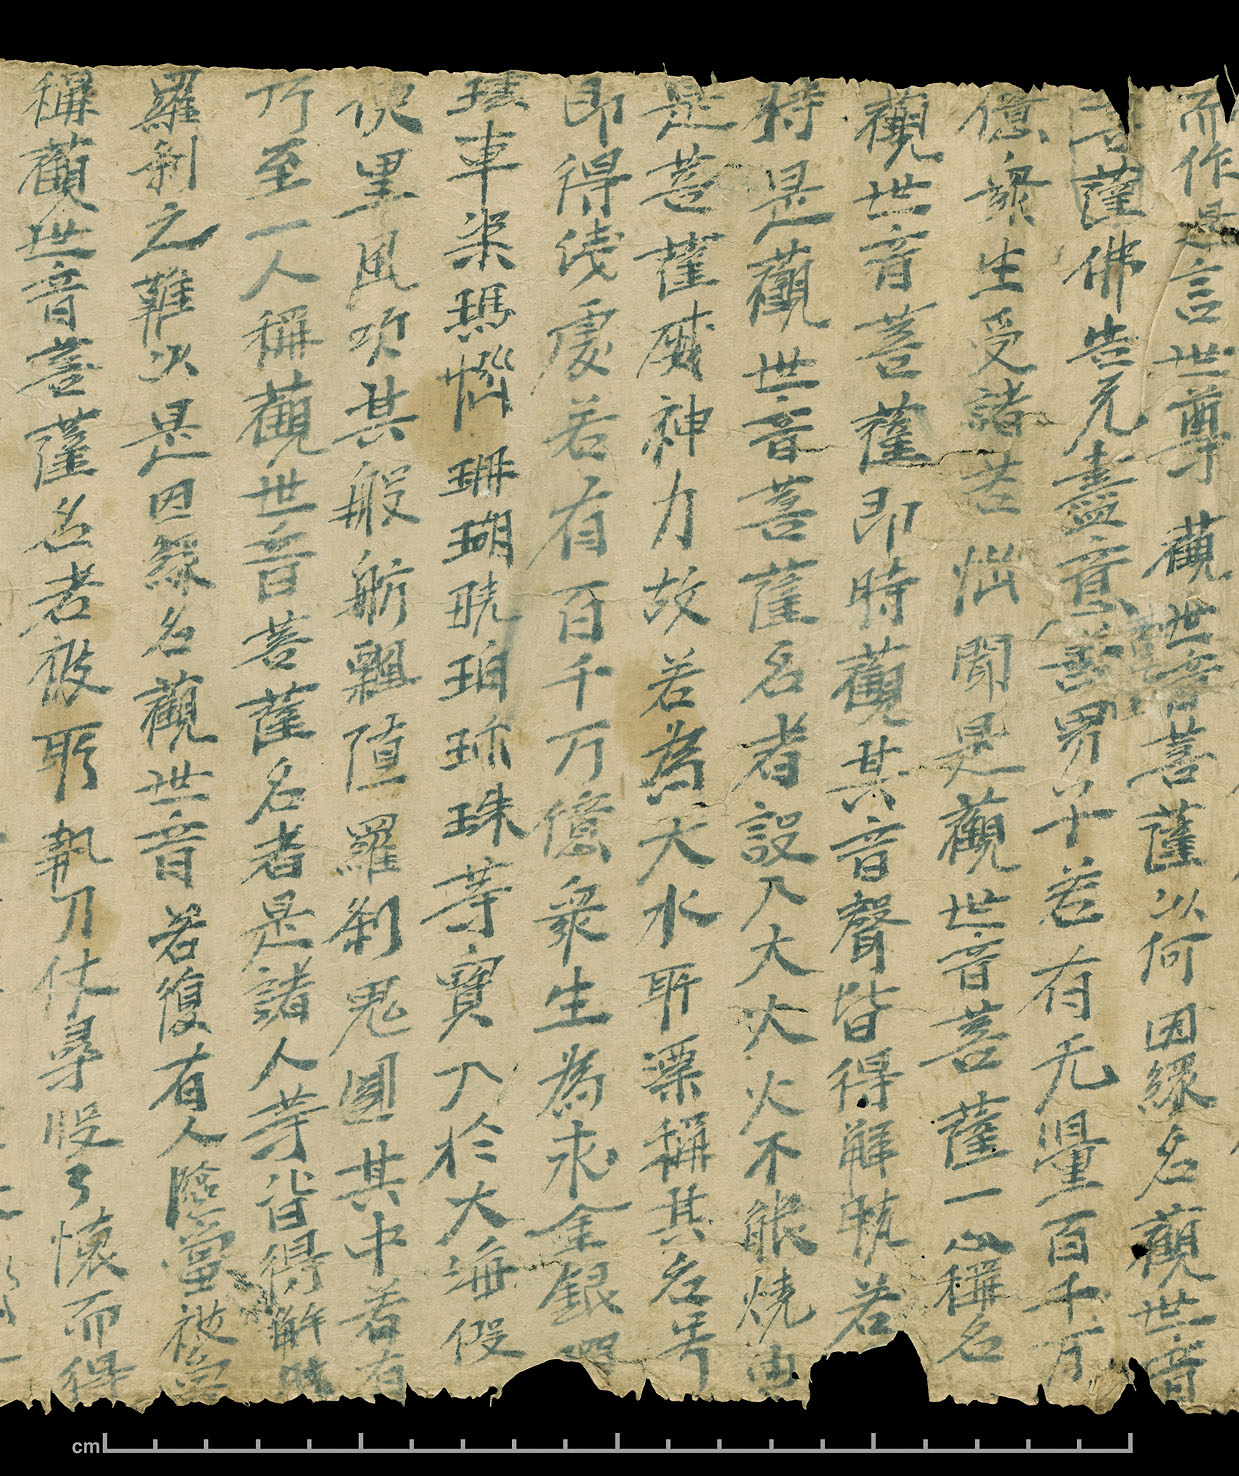 而作是言世尊觀世音菩薩以何因緣名觀世音
菩薩佛告无盡意善男子若有无量百千万
億衆生受諸苦惱聞是觀世音菩薩一心稱名
觀世音菩薩即時觀其音聲皆得解脫若
持是觀世音菩薩名者設入大火火不能燒由
是菩薩威神力故若為大水所漂稱其名号
即得浅處若有百千万億衆生為求金銀
車渠瑪惱珊瑚琥珀珎珠等寶入於大海假
使黑風吹其般舫飄墮羅剎鬼國其中若有
乃至一人稱觀世音菩薩名者是諸人等皆得解脫
羅剎之難以是因緣名觀世音若復有人臨當被害
稱觀世音菩薩名者彼所執刀杖尋段了懷而得